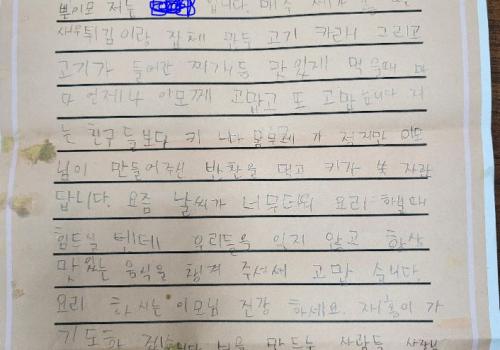 분이모 저는 입니다. 매주
새우튀김이랑 잡채 만두 고기 카레 그리고
고기가 들어간 찌개등 맛있게 먹을때 마
다 언제나 이모께 고맙고 또 고맙습니다 저
는 친구들보다 키 나 몸무게 가 적지만 이모
님이 만들어주신 반찬을 먹고 키가 쑥 자랐
답니다. 요즘 날씨가 너무더워 요리 하실때
힘드실 텐데 우리들을 잊지 않고 항상
맛있는 음식을 챙겨 주셔서 고맙 습니다.
요리 하시는 이모님 건강 하세요. 가
기도할 만드는 사람들